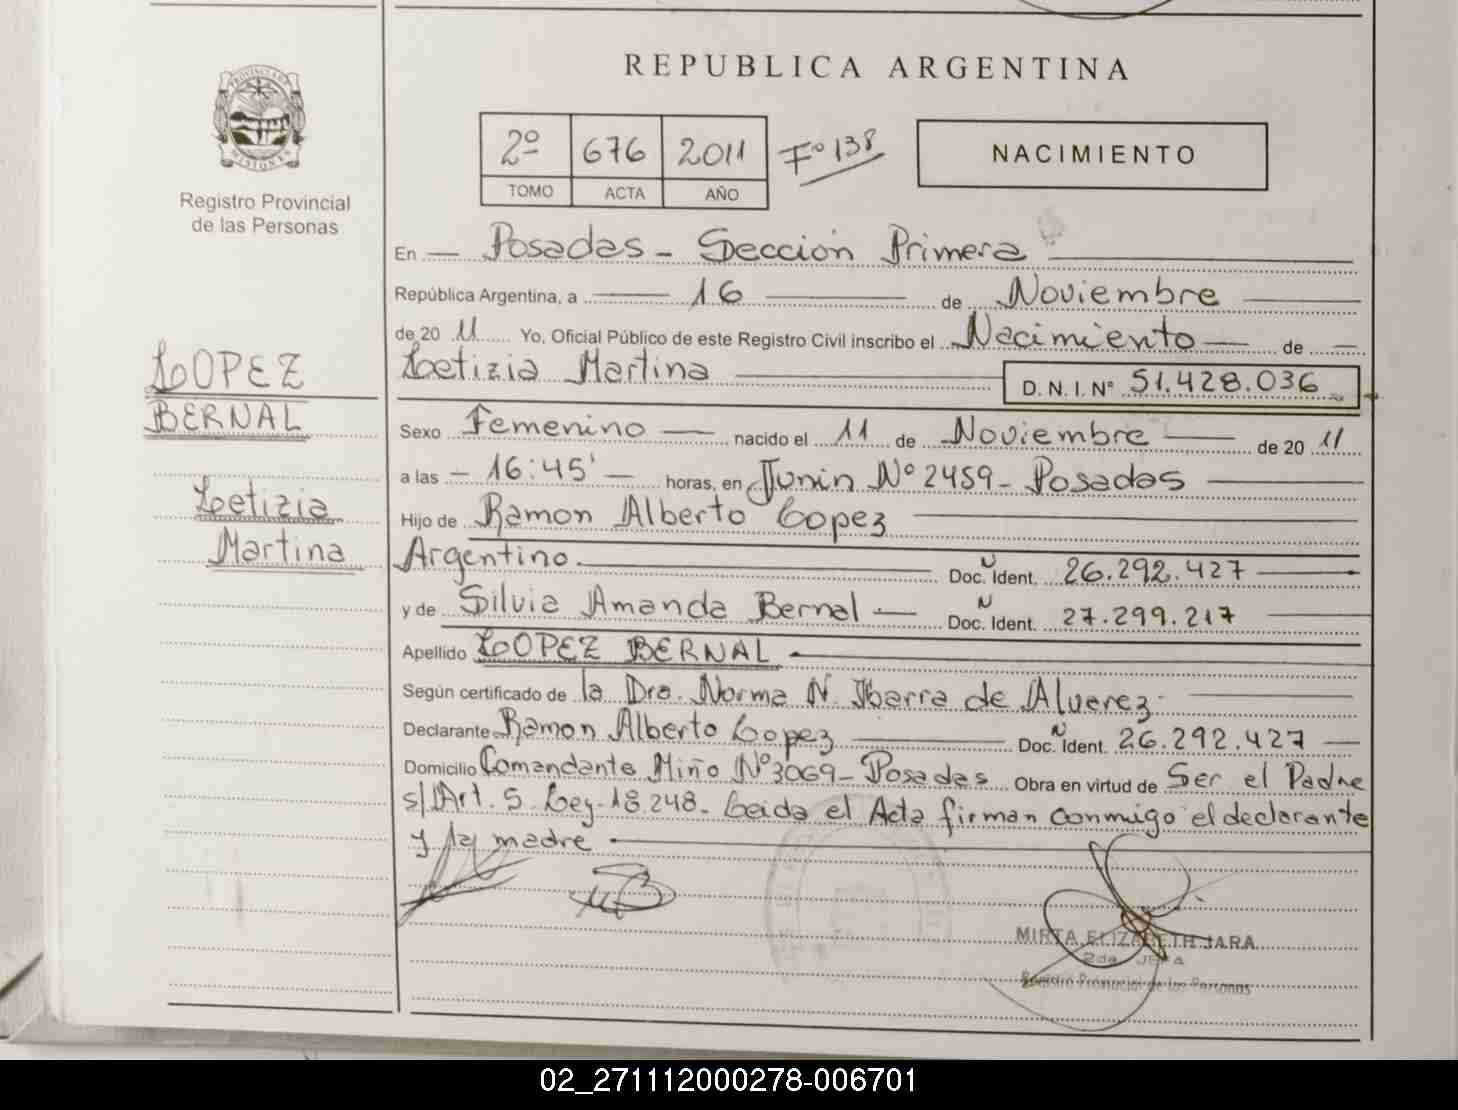 REPUBLICA ARGENTINA
PROVINCIA DE MISIONES
Registro Provincial
de las Personas
2º 676 2011 Fº 138
TOMO ACTA AÑO
NACIMIENTO
En — Posadas - Sección Primera
República Argentina, a 16 de Noviembre
de 20 11 Yo, Oficial Público de este Registro Civil inscribo el Nacimiento — de —
Letizia Martina D. N. I. Nº 51.428.036
LOPEZ
BERNAL
Letizia
Martina
Sexo Femenino — nacido el 11 de Noviembre — de 20 11
a las - 16:45' - horas, en Junin Nº 2459 - Posadas
Hijo de Ramon Alberto Lopez
Argentino. Doc. Ident. N 26.292.427
y de Silvia Amanda Bernal — Doc. Ident. N 27.299.217
Apellido LOPEZ BERNAL
Según certificado de la Dra. Norma N. Ibarra de Alverez.
Declarante Ramon Alberto Lopez Doc. Ident. N 26.292.427
Domicilio Comandante Miño Nº 3069 - Posadas Obra en virtud de Ser el Padre
s/ Art. 5 Ley - 18.248 - Leida el Acta firman conmigo el declarante
y la madre
MIRTA ELIZABETH JARA
2da. JEFA
Registro Provincial de las Personas
02_271112000278-006701